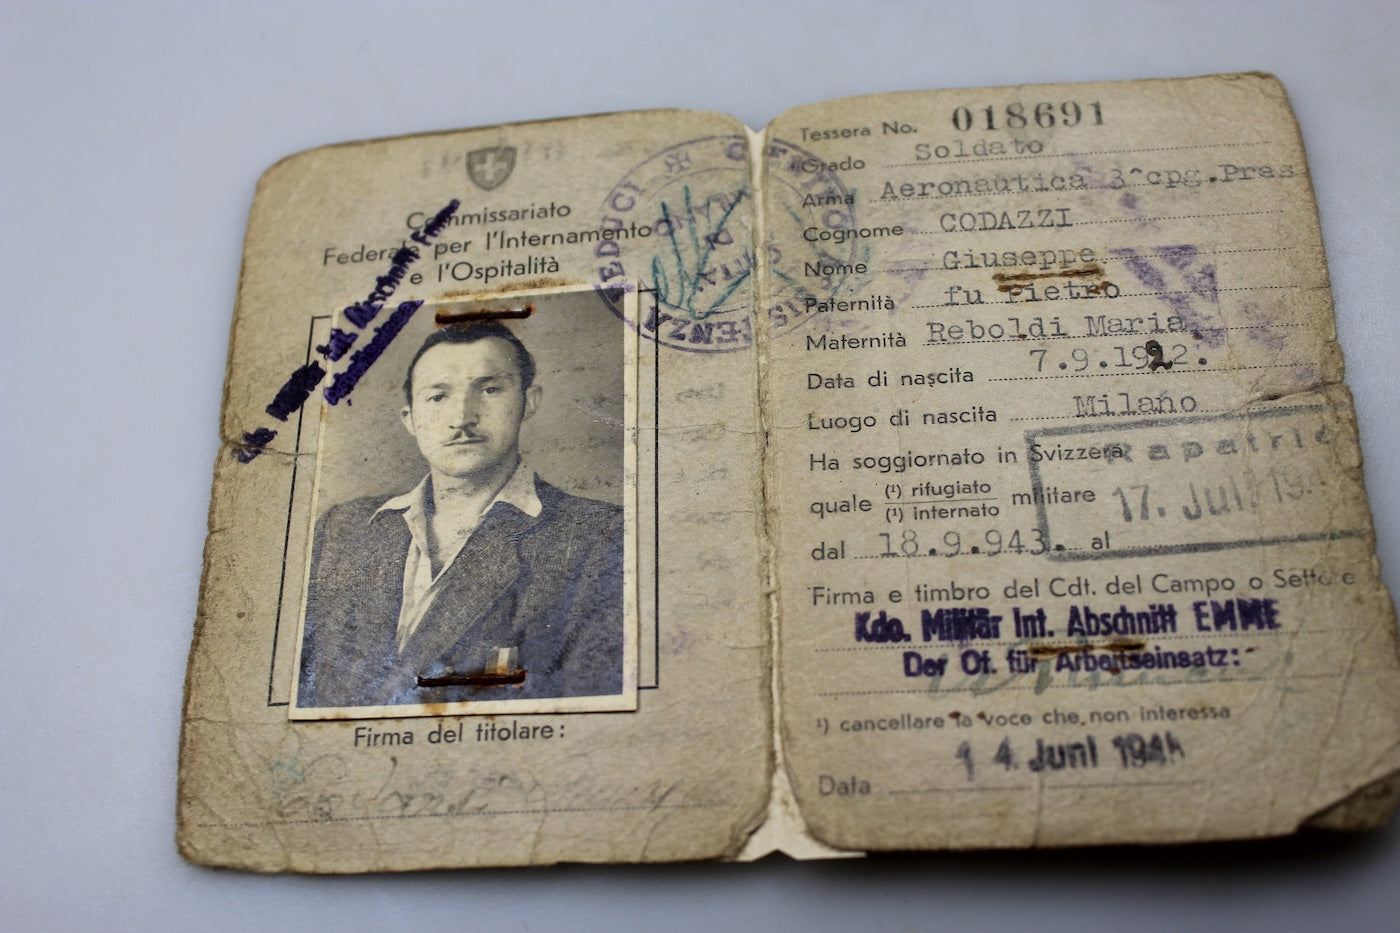 Commissariato
Federale per l'Internamento
e l'Ospitalità
Kdo. Militär Int. Abschnitt Emme
Arbeitseinsatz
REDUCI ✠ CENTRO ASSISTENZA
CITTÀ
DI
MILANO
Firma del titolare:
Tessera No. 018691
Grado Soldato
Arma Aeronautica 3^cpg.Pres
Cognome CODAZZI
Nome Giuseppe
Paternità fu Pietro
Maternità Reboldi Maria
Data di nascita 7.9.1922.
Luogo di nascita Milano
Ha soggiornato in Svizzera
Rapatrié
quale (¹) rifugiato
(¹) internato militare
17. Juli 194
dal 18.9.943. al
Firma e timbro del Cdt. del Campo o Settore
Kdo. Militär Int. Abschnitt EMME
Der Of. für Arbeitseinsatz:
¹) cancellare la voce che non interessa
14. Juni 1945
Data